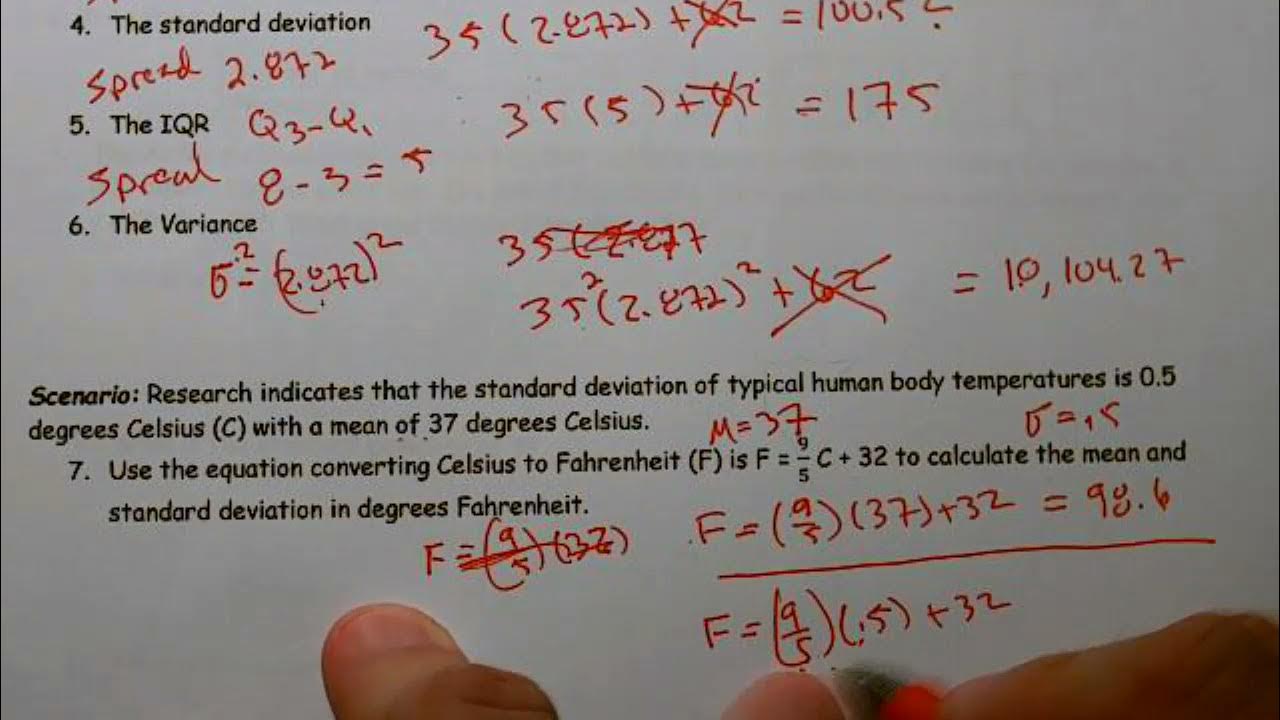 4. The standard deviation 35(2.872)+62 = 100.52
Spread 2.872
5. The IQR Q3-Q1 35(5)+62 = 175
Spread 8-3=5
6. The Variance
σ²=(2.872)² 35(2.877
35²(2.872)²+62 = 10,104.27
Scenario: Research indicates that the standard deviation of typical human body temperatures is 0.5
degrees Celsius (C) with a mean of 37 degrees Celsius. M=37 σ=.5
7. Use the equation converting Celsius to Fahrenheit (F) is F = 9/5 C + 32 to calculate the mean and
standard deviation in degrees Fahrenheit.
F=(9/5)(37) F=(9/5)(37)+32 = 98.6
F=(9/5)(.5)+32